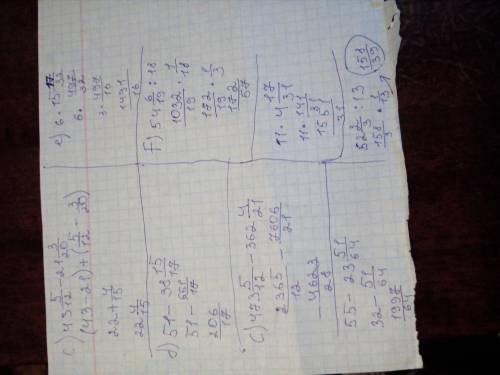 c) 43 5/12 - 21 3/20
(43-21)+(5/12 - 3/20)
22+4/15
22 4/15
d) 51 - 38 15/17
51 - 661/17
206/17
c) 473 5/12 - 362 4/21
2365/12 - 7606/21
- 4623/28
55 - 23 51/64
32 - 51/64
1997/64
e) 6 · 15 17/32
6 · 497/32
3 · 497/16
1491/16
f) 54 6/19 : 18
1032/19 · 1/18
172/19 · 1/3
172/57
11 · 4 17/31
11 · 141/31
1551/31
52 2/3 : 13
158/3 · 1/13
158/39